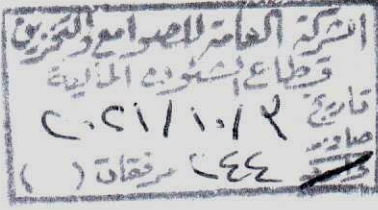 الشركة العامة للصوامع والتخزين
قطاع الشئون المالية
تاريخ ٢٠٢١/١٠/٣
صادر
٢٤٤ مرفقات ( )